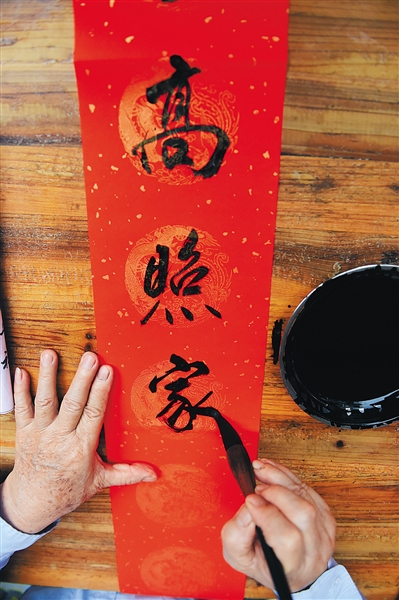 高照家